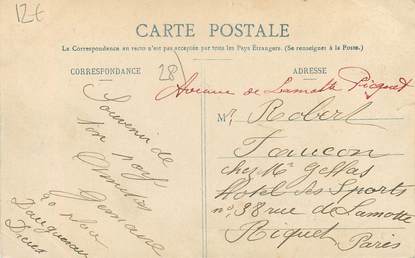 12€
CARTE POSTALE
La Correspondance au recto n'est pas acceptée par tous les Pays Étrangers. (Se renseigner à la Poste.)
CORRESPONDANCE
28
ADRESSE
Avenue de Lamotte Picquet
Souvenir de
Ton
Amitiés
Germaine
Mr Robert
Faucon
chez Mr
Hotel des Sports
no 38 rue de Lamotte
Piquet
Paris